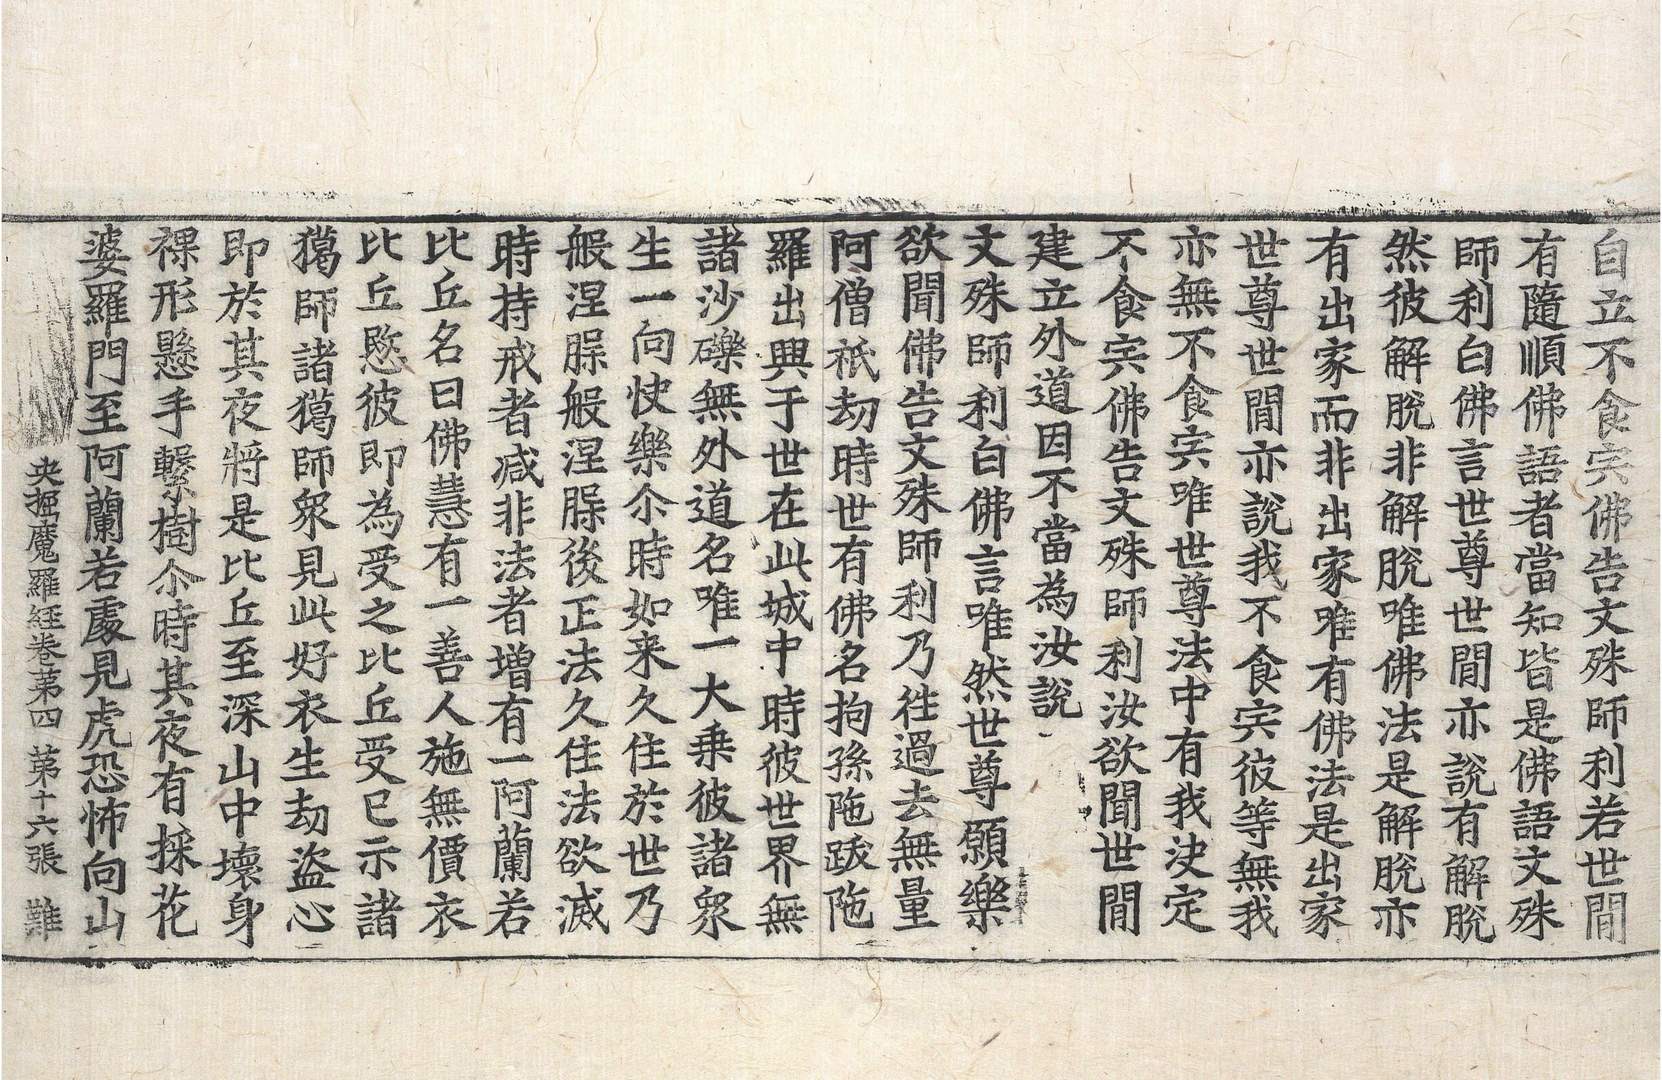 自立不食宍佛告文殊師利若世間
有隨順佛語者當知皆是佛語文殊
師利白佛言世尊世間亦說有解脫
然彼解脫非解脫唯佛法是解脫亦
有出家而非出家唯有佛法是出家
世尊世間亦說我不食宍彼等無我
亦無不食宍唯世尊法中有我决定
不食宍佛告文殊師利汝欲聞世間
建立外道因不當為汝說
文殊師利白佛言唯然世尊願樂
欲聞佛告文殊師利乃徃過去無量
阿僧祇劫時世有佛名拘孫陁跋陁
羅出興于世在此城中時彼世界無
諸沙礫無外道名唯一大乗彼諸衆
生一向快樂尒時如来久住於世乃
般涅𦖠般涅𦖠後正法久住法欲滅
時持戒者减非法者增有一阿蘭若
比丘名曰佛慧有一善人施無價衣
比丘愍彼即為受之比丘受已示諸
獦師諸獦師衆見此好衣生劫盜心
即於其夜將是比丘至深山中壞身
裸形懸手繫樹尒時其夜有採花
婆羅門至阿蘭若處見虎恐怖向山
央掘魔羅経卷苐四 苐十六張 難